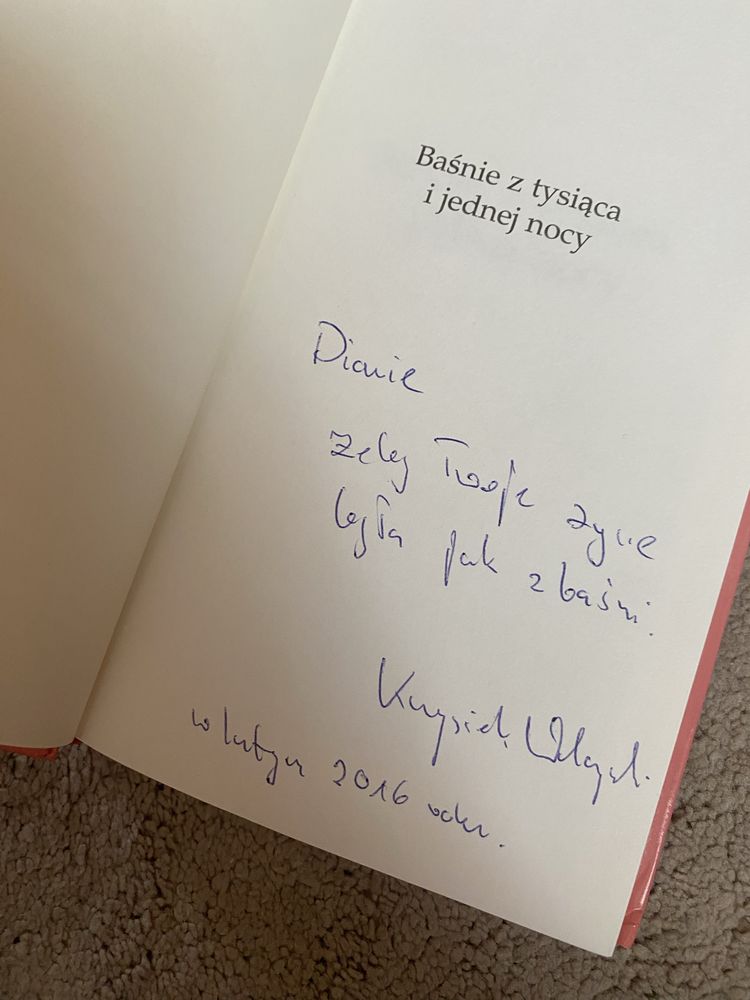 Baśnie z tysiąca
i jednej nocy
Dianie
żeby Twoje życie
było jak z baśni.
Krzysiek
w lutym 2016 roku.